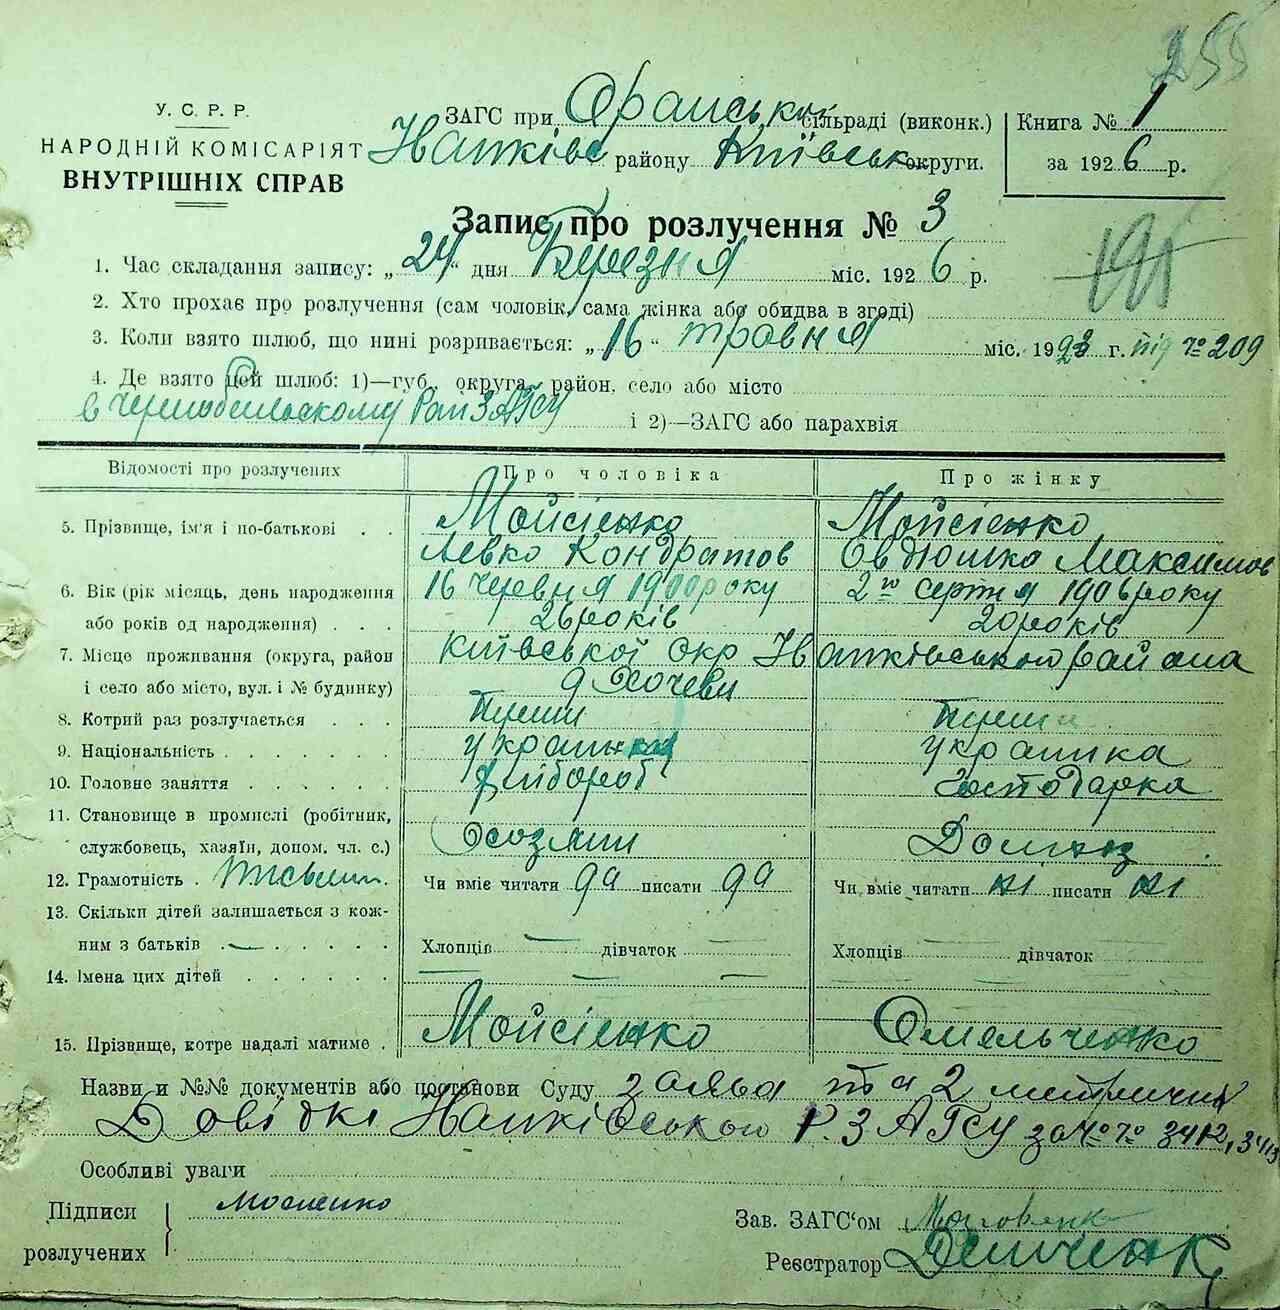 255
У. С. Р. Р.
НАРОДНІЙ КОМІСАРІЯТ
ВНУТРІШНІХ СПРАВ
ЗАГС при сільраді (виконк.)
району Київськ округи.
Книга № 1
за 1926 р.
Запис про розлучення № 3
195
1. Час складання запису: „24“ дня Березня міс. 1926 р.
2. Хто прохає про розлучення (сам чоловік, сама жінка або обидва в згоді)
3. Коли взято шлюб, що нині розривається: „16“ травня міс. 1923 г. під № 209
4. Де взято цей шлюб: 1)—губ., округа, район, село або місто
в Чернобильскому РайЗАГСу і 2)—ЗАГС або парахвія
Відомості про розлучених Про чоловіка Про жінку
5. Прізвище, ім'я і по-батькові . . Мойсієнко Мойсієнко
Левко Кондратов Овдюшка Максимов
6. Вік (рік місяць, день народження 16 Червня 1900 року 2го серпня 1906 року
або років од народження) . . . 26 років 20 років
7. Місце проживання (округа, район Київської Окр Іванківського району
і село або місто, вул. і № будинку)
8. Котрий раз розлучається . . .
9. Національність . . . . . . українка
10. Головне заняття . . . . . . хлібороб Господарка
11. Становище в промислі (робітник,
службовець, хазяїн, допом. чл. с.)
12. Грамотність . Письмен. Чи вміє читати да писати да Чи вміє читати ні писати ні
13. Скільки дітей залишається з кож-
ним з батьків . — . . . . . Хлопців — дівчаток — Хлопців — дівчаток —
14. Імена цих дітей . . . . . . — — —
15. Прізвище, котре надалі матиме . Мойсієнко Омельченко
Назви и №№ документів або постанови Суду заява та 2 метричних
Довідкі Іванківською Р.ЗАГСу за №№ 3412, 3413
Особливі уваги
Підписи
розлучених
Мосиенко
Зав. ЗАГС‘ом
Реєстратор Демченко